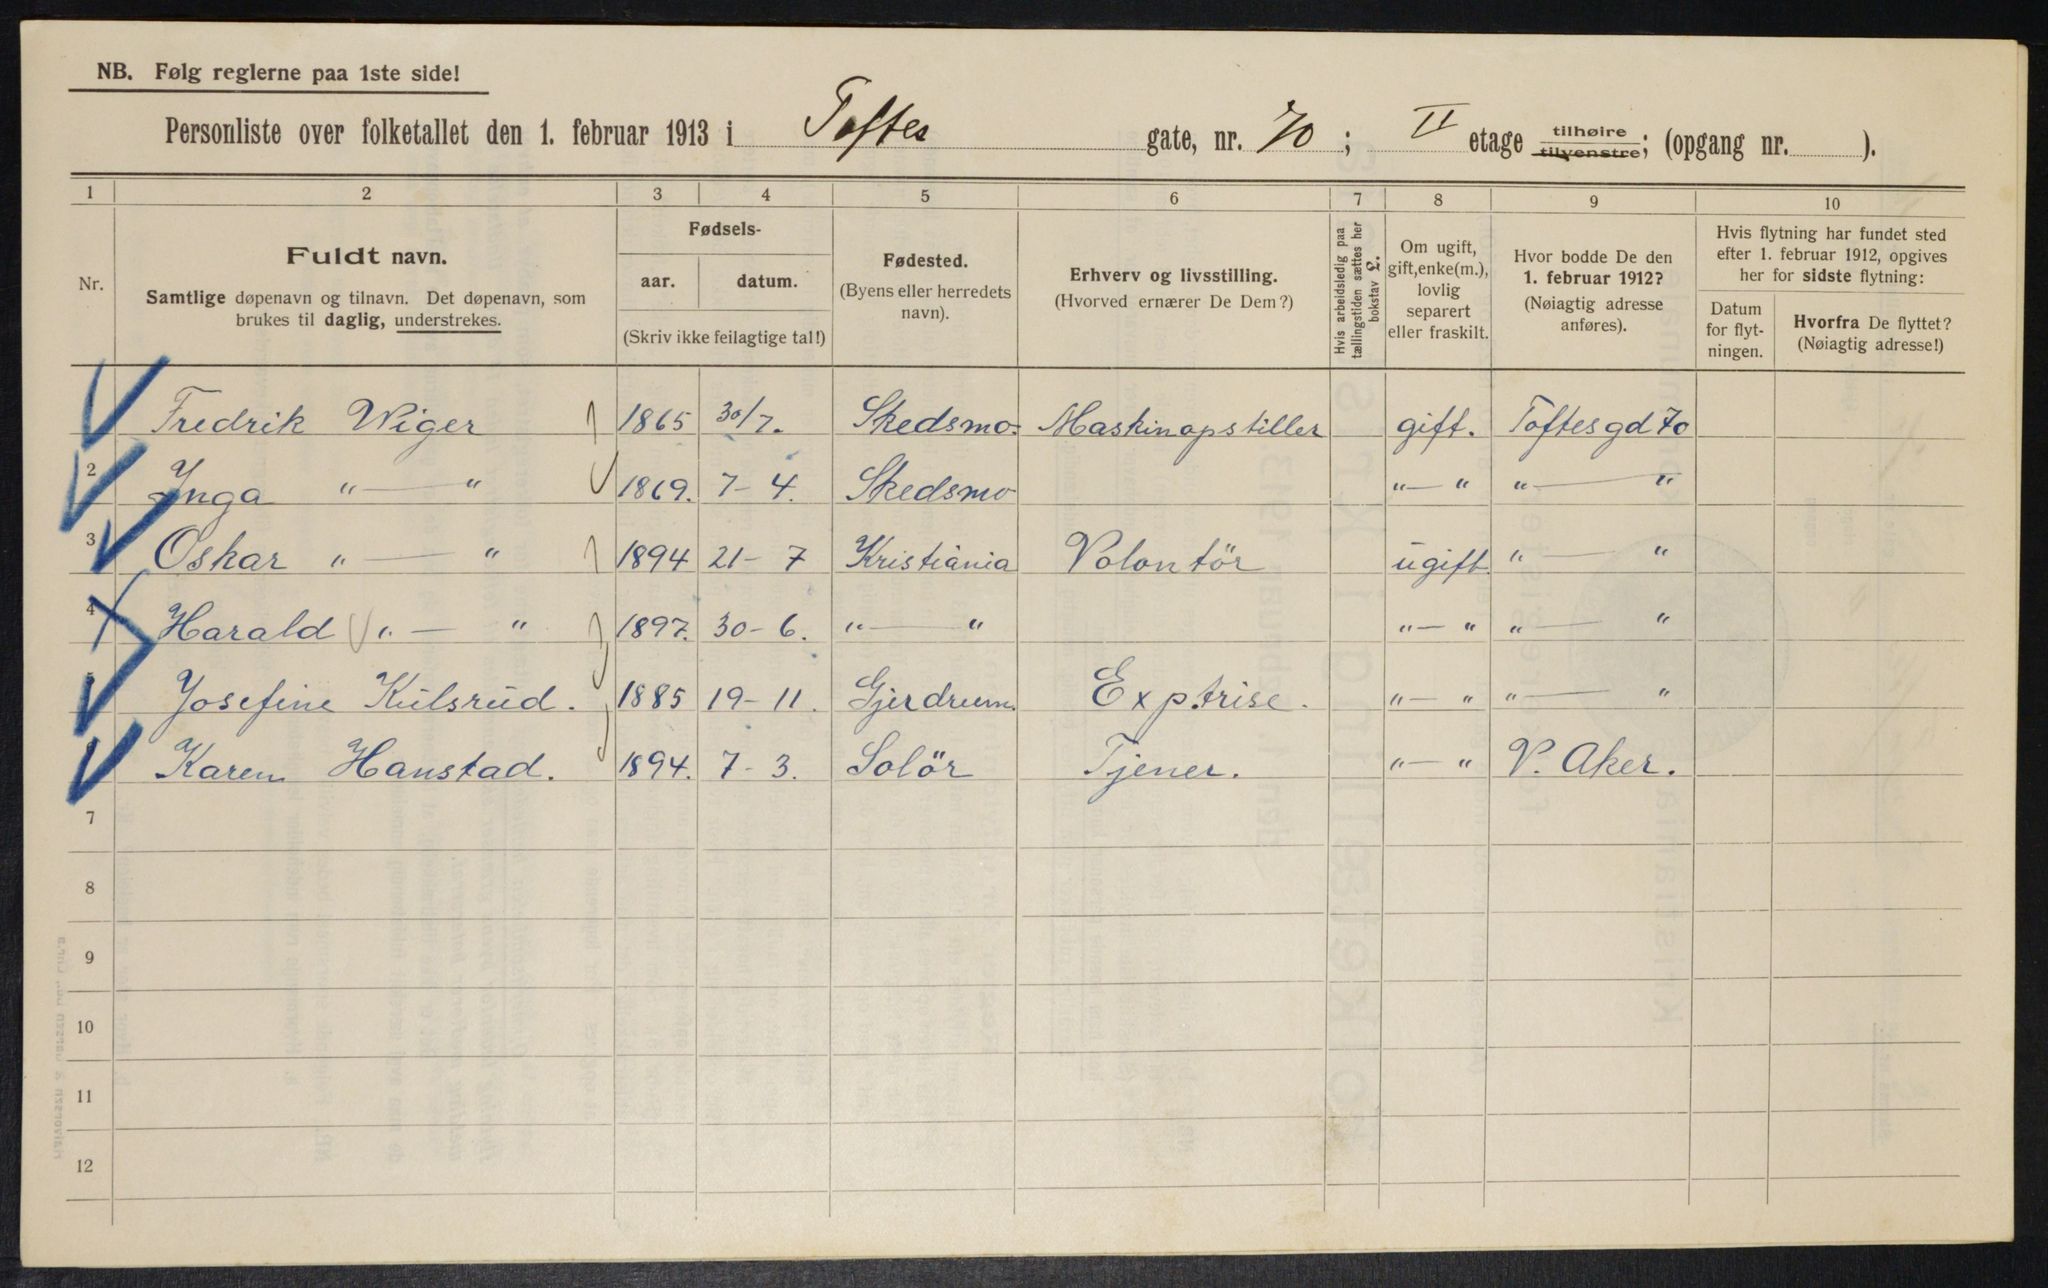 NB. Følg reglerne paa 1ste side!
Personliste over folketallet den 1. februar 1913 i Toftes gate, nr. 70; II etage tilhøire tilvenstre; (opgang nr. ).
1 2 3 4 5 6 7 8 9 10
Nr.
Fuldt navn.
Samtlige døpenavn og tilnavn. Det døpenavn, som
brukes til daglig, understrekes.
Fødsels-
aar. datum.
(Skriv ikke feilagtige tal!)
Fødested.
(Byens eller herredets
navn).
Erhverv og livsstilling.
(Hvorved ernærer De Dem?)
Hvis arbeidsledig paa
tællingstiden sættes her
bokstav L.
Om ugift,
gift, enke(m.),
lovlig
separert
eller fraskilt.
Hvor bodde De den
1. februar 1912?
(Nøiagtig adresse
anføres).
Hvis flytning har fundet sted
efter 1. februar 1912, opgives
her for sidste flytning:
Datum
for flyt-
ningen.
Hvorfra De flyttet?
(Nøiagtig adresse!)
Fredrik Wiger 1865 30/7. Skedsmo. Maskinopstiller gift. Toftesgd 70
2 Inga " — " 1869. 7 - 4. Skedsmo " — " " — "
3 Oskar " — " 1894 21 - 7 Kristiania Volontör ugift. " — "
4 Harald " — " 1897. 30 - 6. " — " " — " " — "
5 Josefine Kulsrud. 1885 19 - 11. Gjerdrum. Exptrise. " — " " — "
Karen Hanstad. 1894. 7 - 3. Solör Tjener. " — " V. Aker.
7
8
9
10
11
12